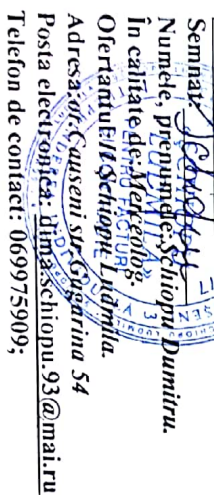 Semnat:
Numele, prenumele: Schiopu Dumitru.
În calitate de: Merceolog.
Ofertantul: Î.I Schiopu Ludmila.
Adresa: or. Causeni str. Gagarina 54
Posta electronica: dima.schiopu.93@mai.ru
Telefon de contact: 069975909;